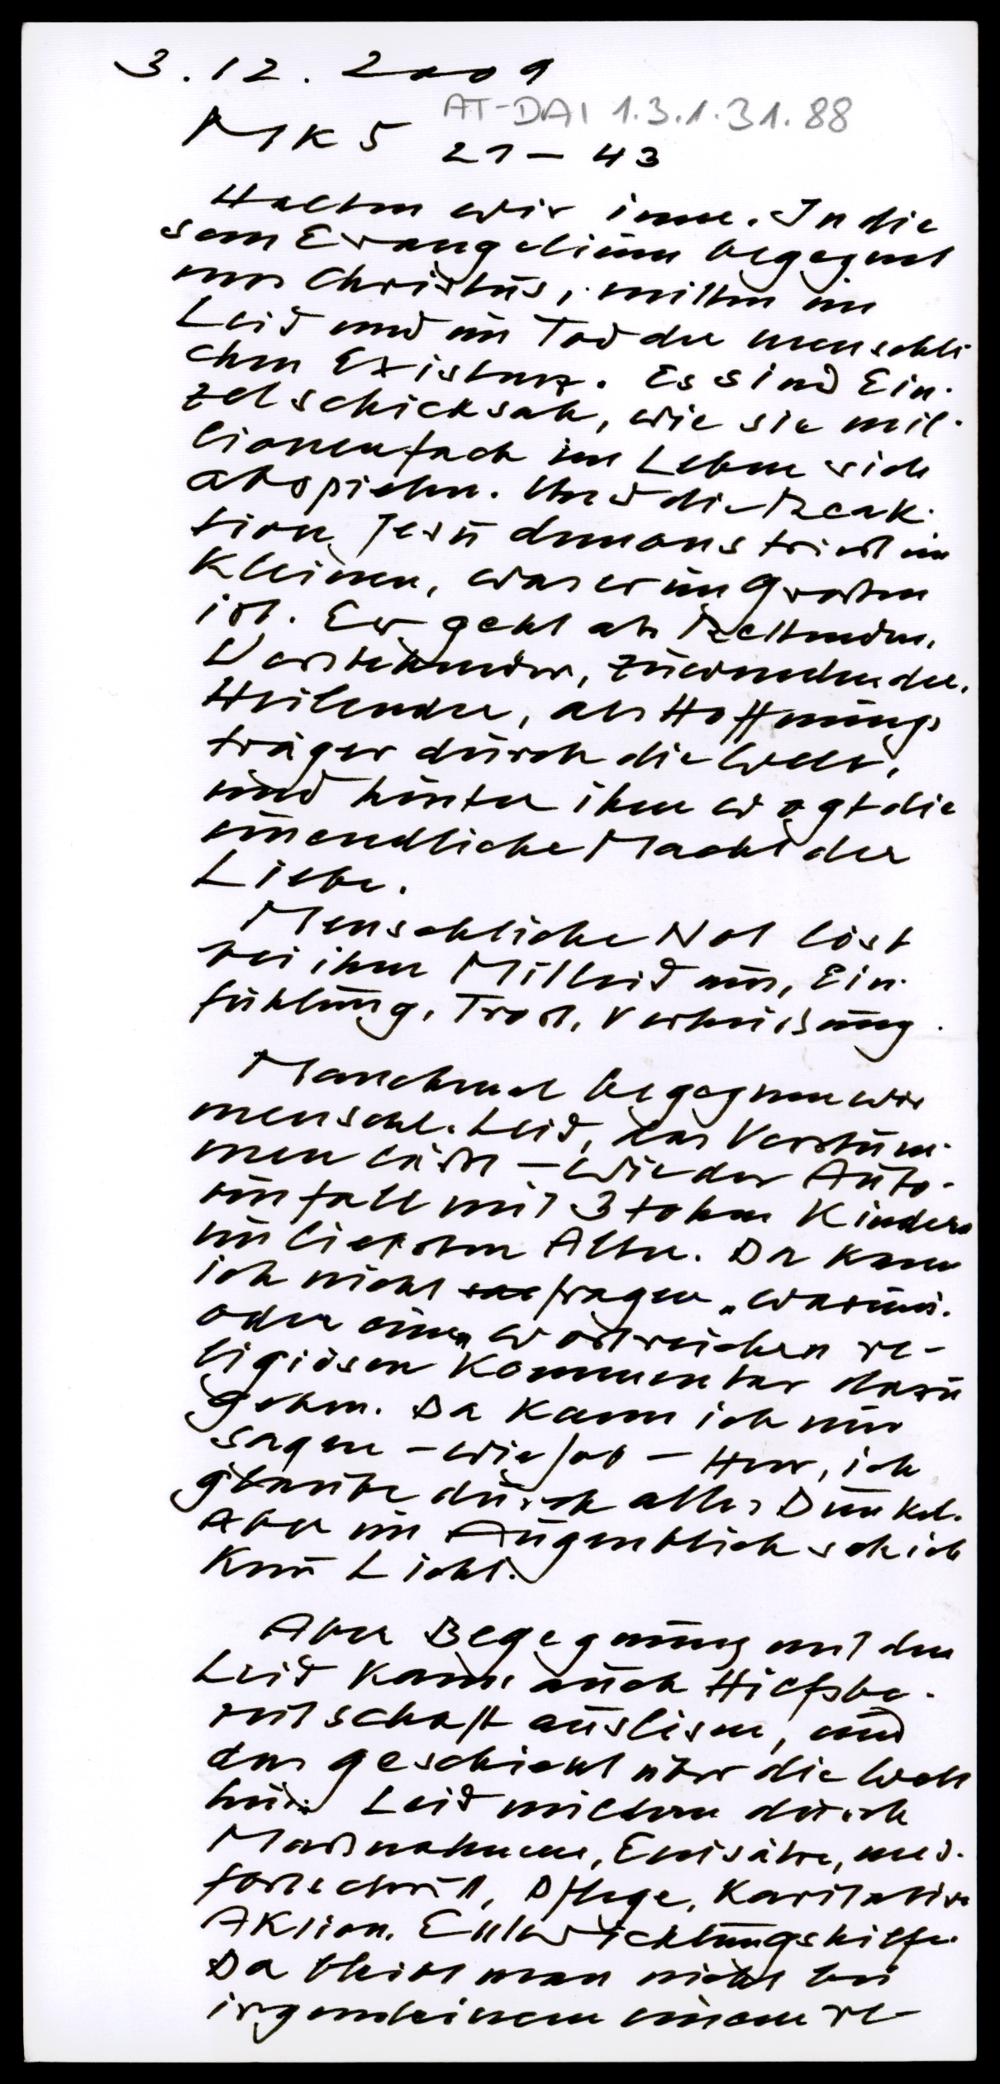 3.12.2009
AT-DAI 1.3.1.31.88
MK 5 21 - 43
Halten wir inne. In die
sem Evangelium begegnet
uns Christus, mitten im
Leid und im Tod der menschli
chen Existenz. Es sind Ein-
zelschicksale, wie sie mil-
lionenfach im Leben sich
abspielen. Und die Reak-
tion Jesu demonstriert im
Kleinen, was er im Großen
ist. Er geht als Rettender,
Verstehender, zuwendender,
Heilender, als Hoffnungs
träger durch die Welt,
und hinter ihm wogt die
unendliche Macht der
Liebe.
Menschliche Not löst
bei ihm Mitleid aus, Ein-
fühlung, Trost, Verheißung.
Manchmal begegnen wir
menschl. Leid, das Verstum-
men läßt – wie der Auto-
unfall mit 3 toten Kindern
im liebsten Alter. Da kann
ich nicht fragen „warum"
oder einen wortreichen re-
ligiösen Kommentar dazu
geben. Da kann ich nur
sagen – wie Job – Herr, ich
glaube durch alles Dunkel.
Aber im Augenblick seh ich
kein Licht.
Aber Begegnung mit dem
Leid kann auch Hilfsbe-
reitschaft auslösen, und
das geschieht über die Welt
hin. Leid mildern durch
Maßnahmen, Einsätze, med.
Fortschritt, Pflege, Karitative
Aktion. Entwicklungshilfe.
Da bleibt man nicht bei
irgendeinem einem re-